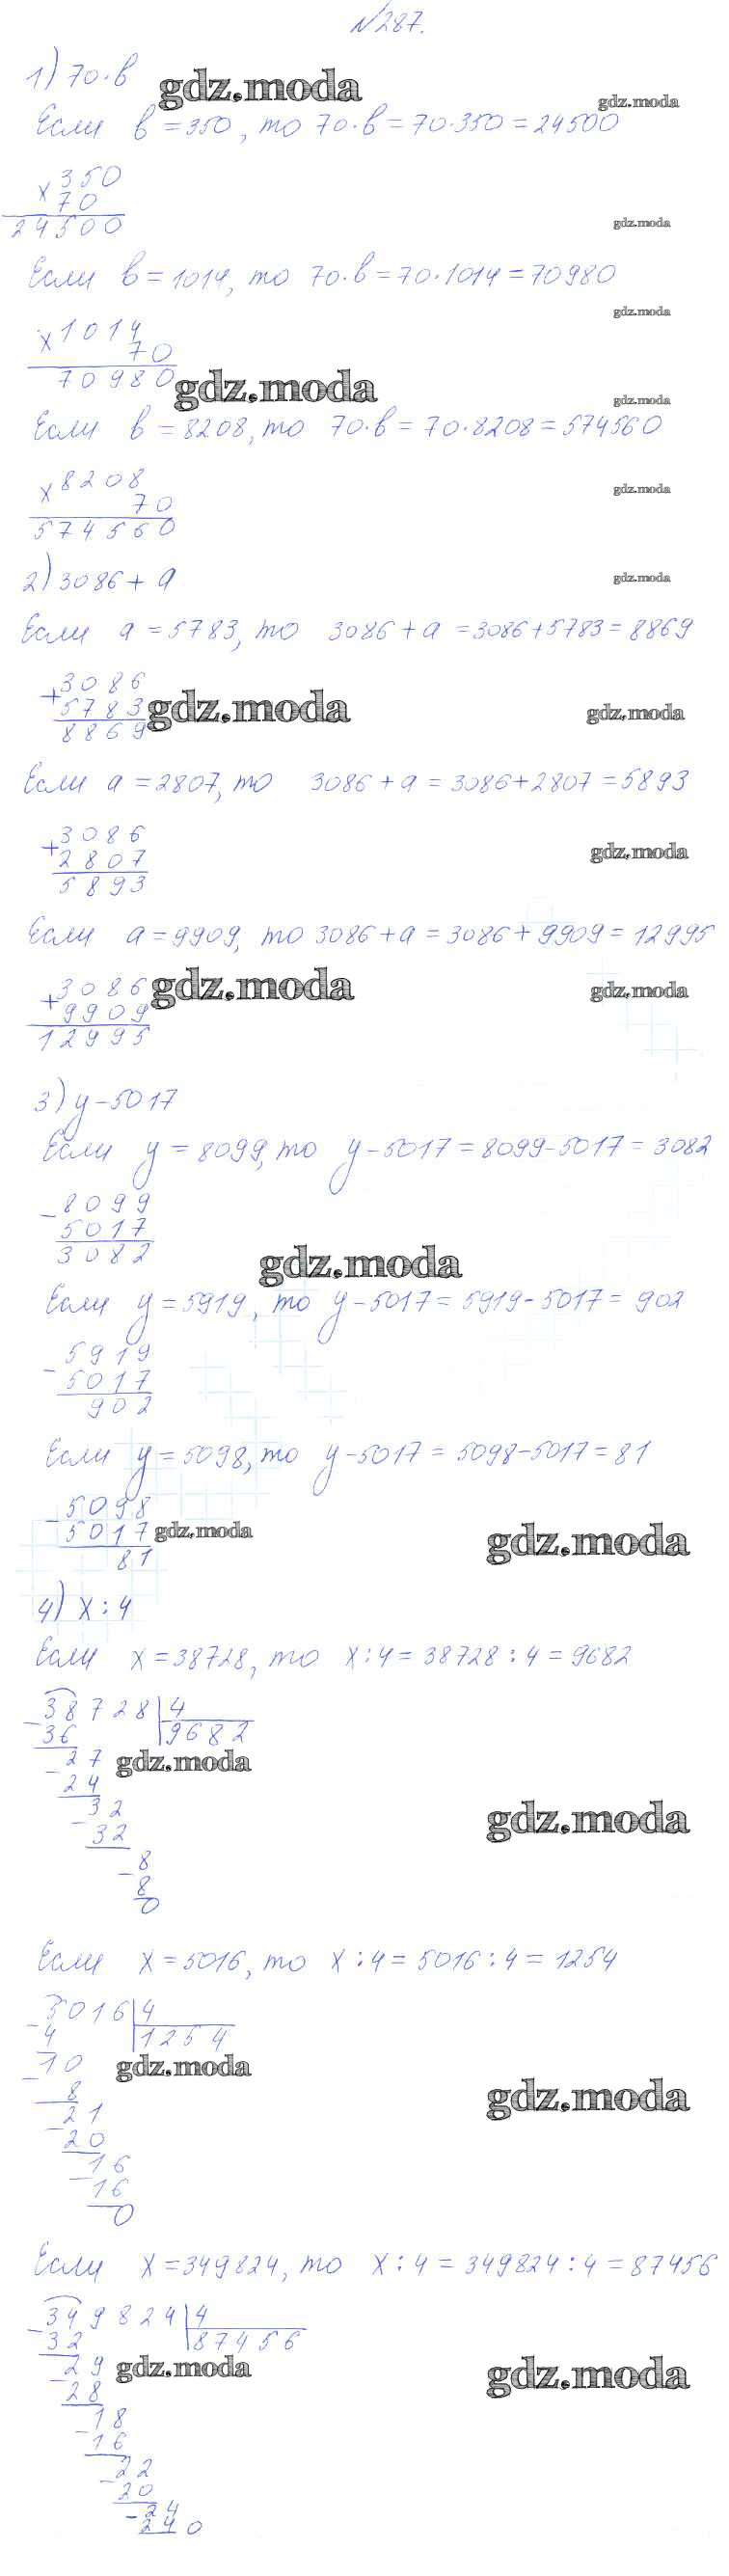 №287.
1) 70·b
gdz.moda
gdz.moda
Если b=350, то 70·b=70·350=24500
×350
70
24500
gdz.moda
Если b=1014, то 70·b=70·1014=70980
gdz.moda
×1014
70
70980
gdz.moda
gdz.moda
Если b=8208, то 70·b=70·8208=574560
×8208
70
574560
gdz.moda
2) 3086+a
gdz.moda
Если a=5783, то 3086+a=3086+5783=8869
+3086
5783
8869
gdz.moda
gdz.moda
Если a=2807, то 3086+a=3086+2807=5893
+3086
2807
5893
gdz.moda
Если a=9909, то 3086+a=3086+9909=12995
+3086
9909
12995
gdz.moda
gdz.moda
3) y-5017
Если y=8099, то y-5017=8099-5017=3082
-8099
5017
3082
gdz.moda
Если y=5919, то y-5017=5919-5017=902
-5919
5017
902
Если y=5098, то y-5017=5098-5017=81
-5098
5017
81
gdz.moda
gdz.moda
4) x:4
Если x=38728, то x:4=38728:4=9682
-38728|4
36 9682
-27
24
-32
32
-8
8
0
gdz.moda
gdz.moda
Если x=5016, то x:4=5016:4=1254
-5016|4
4 1254
-10
8
-21
20
-16
16
0
gdz.moda
gdz.moda
Если x=349824, то x:4=349824:4=87456
-349824|4
32 87456
-29
28
-18
16
-22
20
-24
24 0
gdz.moda
gdz.moda